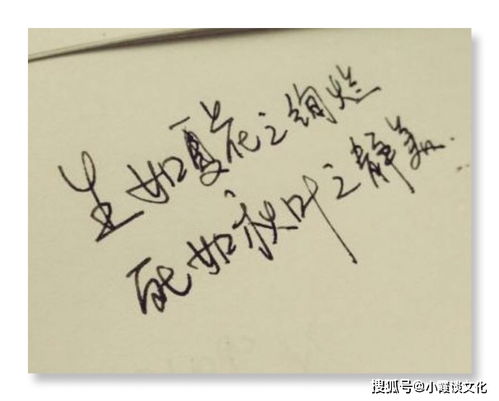 生如夏花之绚烂
死如秋叶之静美.
搜狐号@小霞谈文化